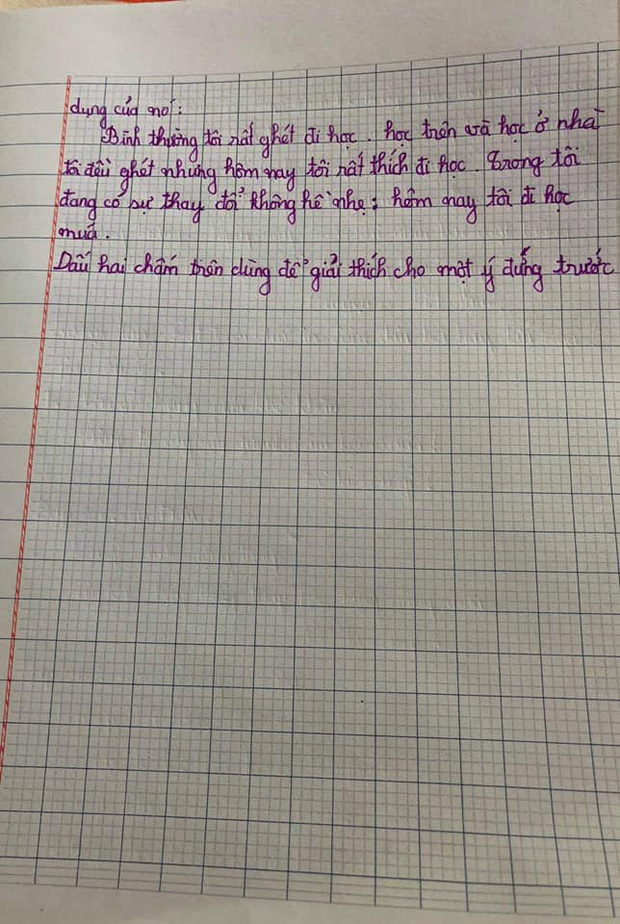 dụng của nó:
Bình thường tôi rất ghét đi học. học trên và học ở nhà
tôi đều ghét nhưng hôm nay tôi rất thích đi học. Trong tôi
đang có sự thay đổi không hề nhẹ: hôm nay tôi đi học
muá.
Dấu hai chấm trên dùng để giải thích cho một ý đứng trước